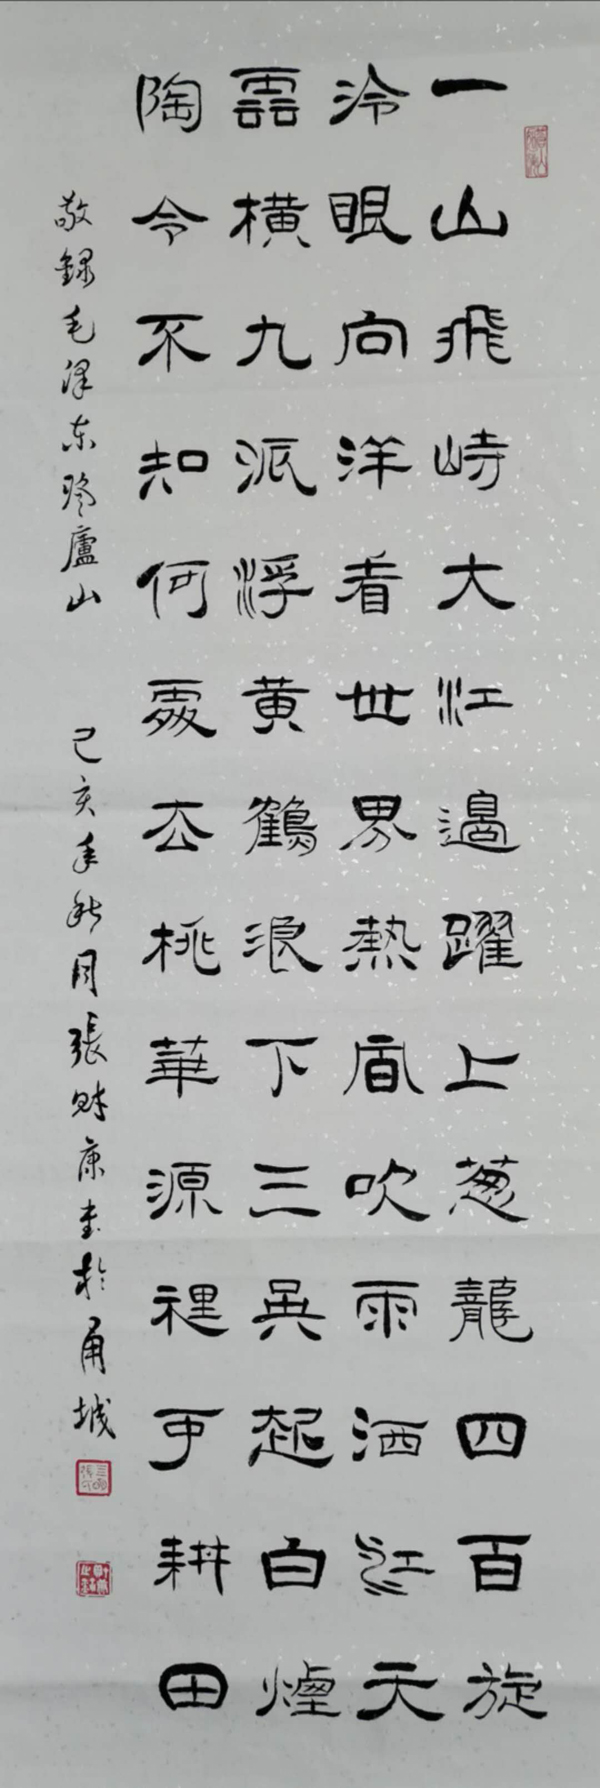 一山飛峙大江邊躍上蔥龍四百旋
冷眼向洋看世界熱風吹雨洒江天
雲橫九派浮黃鶴浪下三吳起白煙
陶令不知何處去桃華源裡可耕田
敬録毛泽东登廬山
己亥年秋月張財康書於甬城